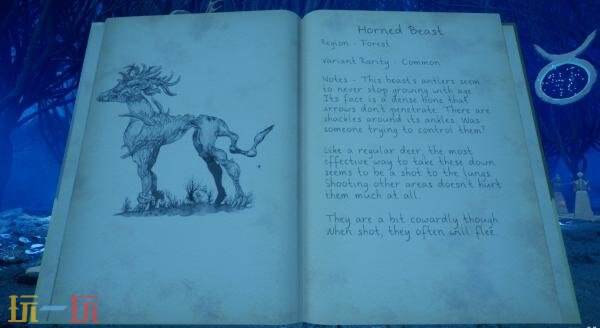 Horned Beast
Region - Forest
Variant Rarity - Common
Notes - This beast's antlers seem
to never stop growing with age.
Its face is a dense bone that
arrows don't penetrate. There are
shackles around its ankles. Was
someone trying to control them?
Like a regular deer, the most
effective way to take these down
seems to be a shot to the lungs.
Shooting other areas doesn't hurt
them much at all.
They are a bit cowardly though.
When shot, they often will flee.
玩一玩